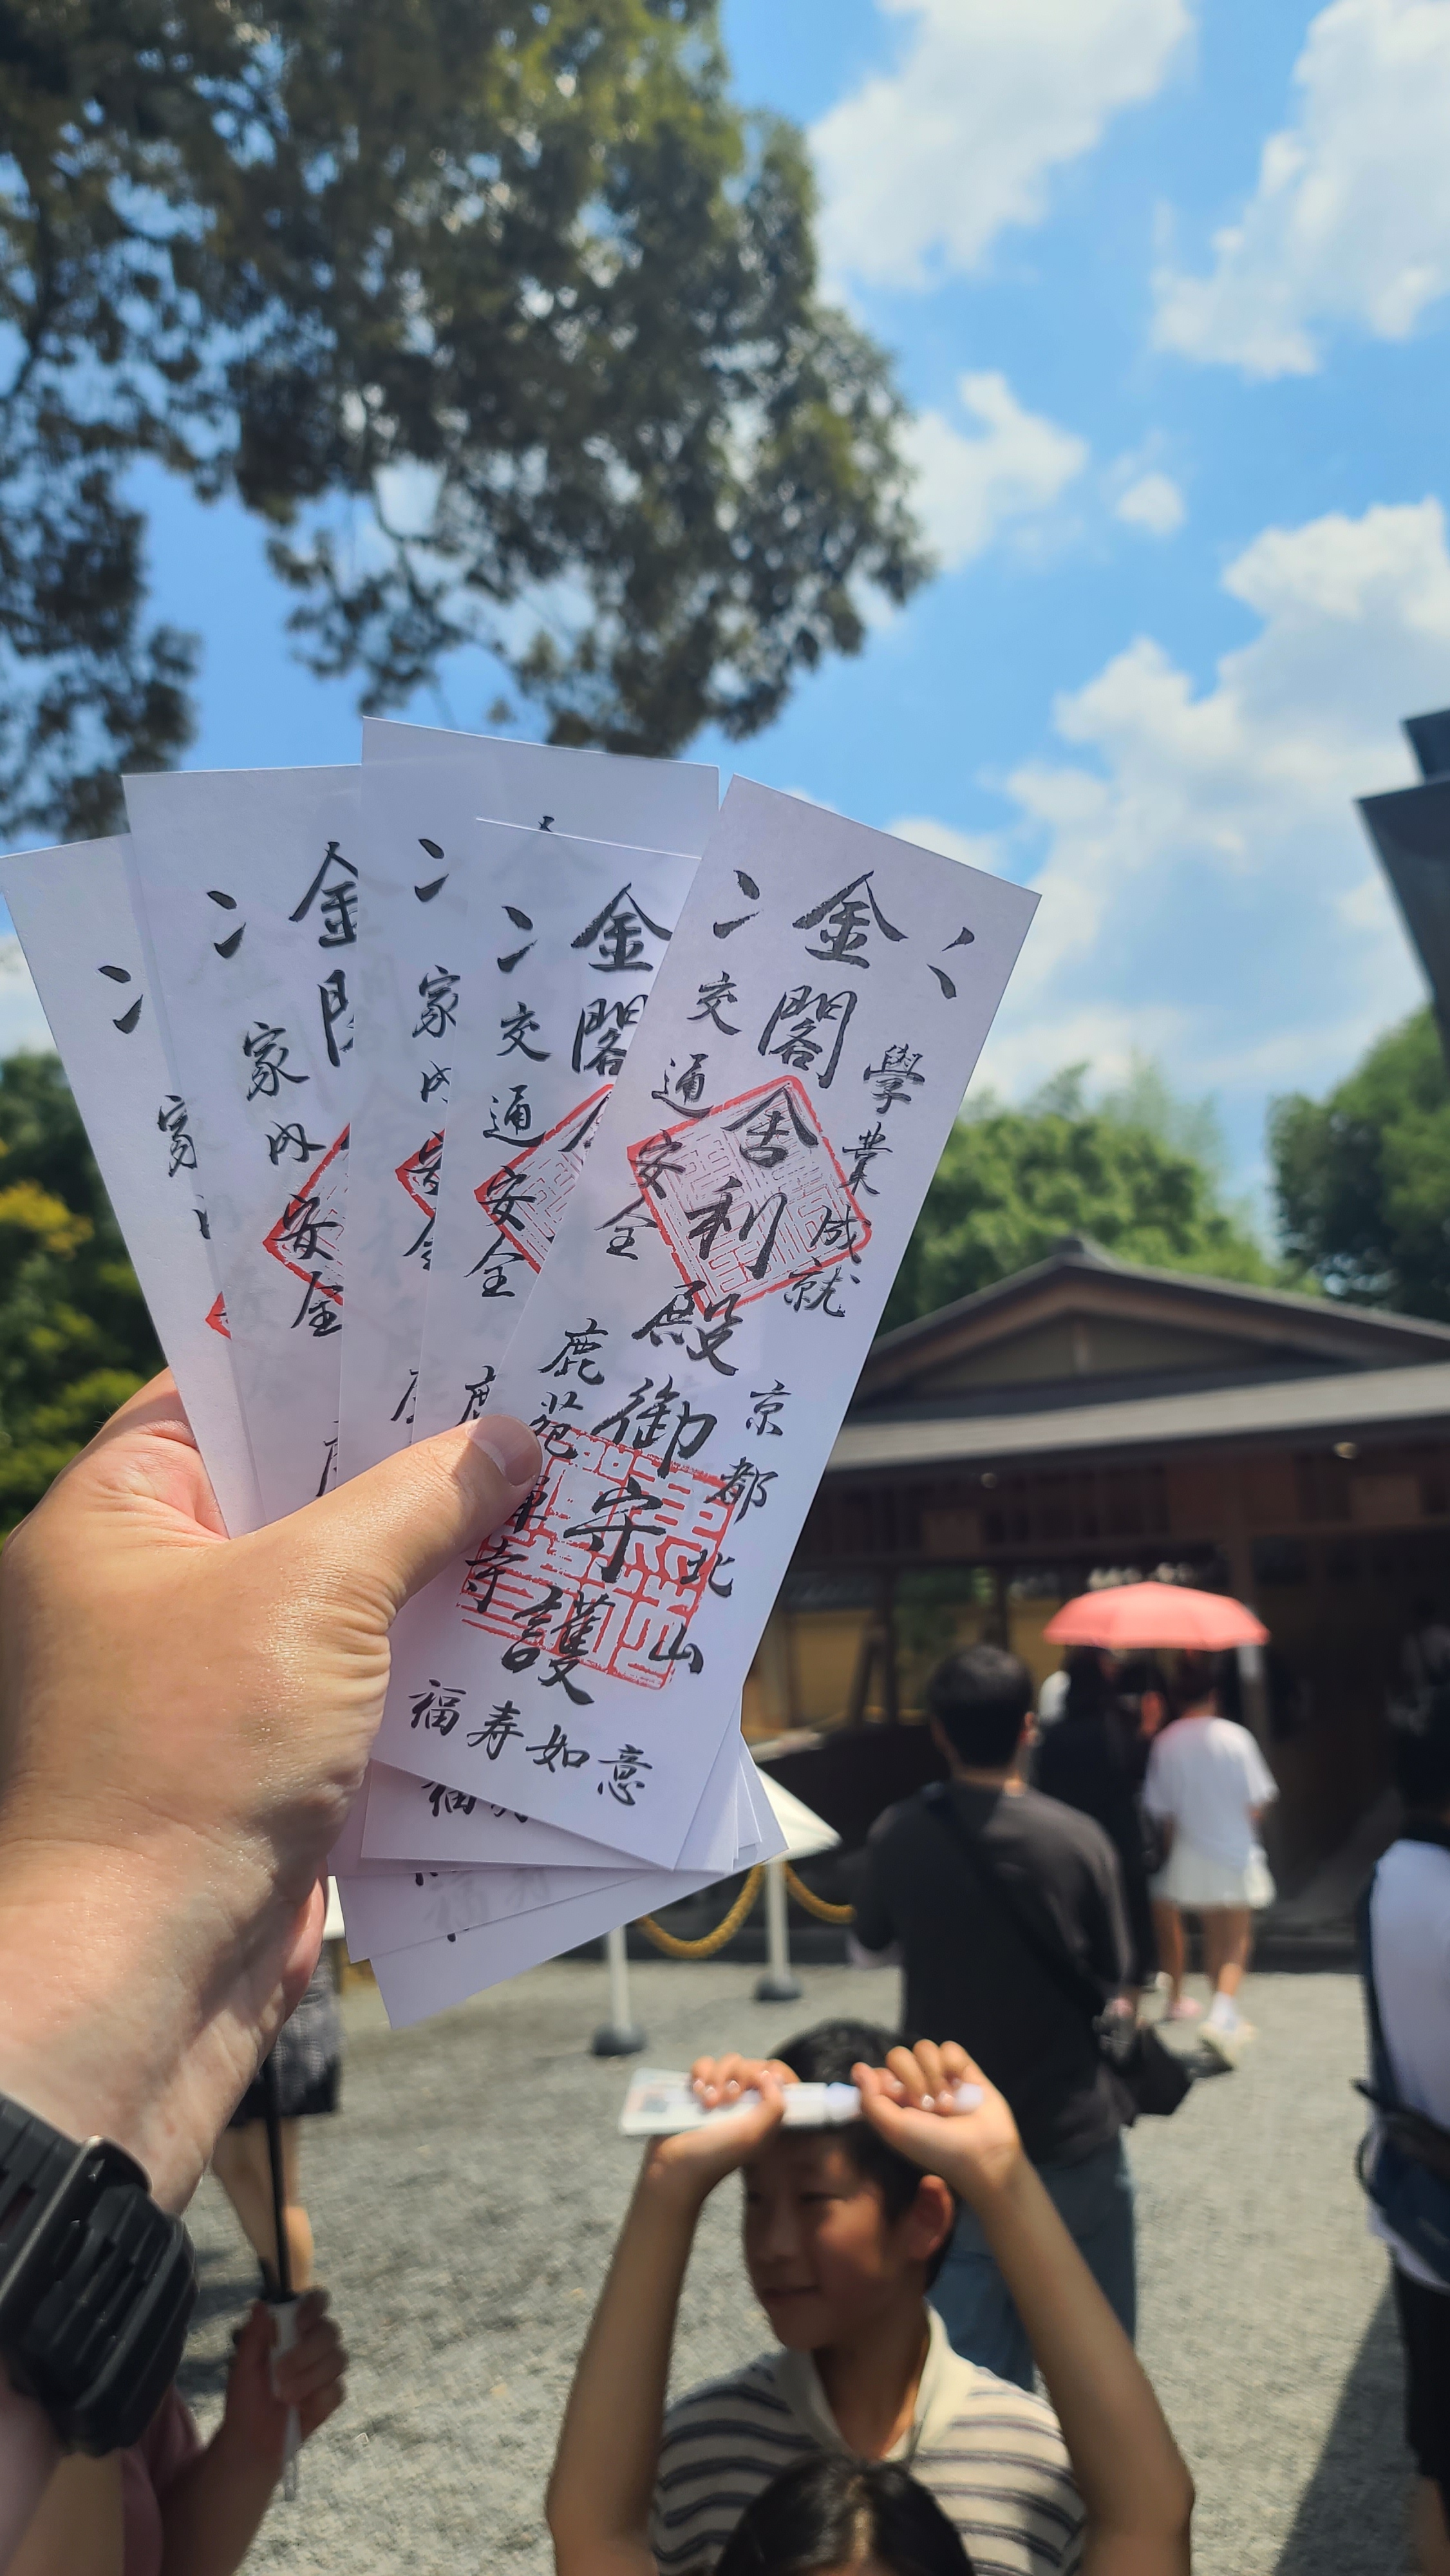 學業成就
京都北山
金閣舍利殿御守護
交通安全
鹿苑
寺
福寿如意
金閣
交通安全
家内安
金
家内安全